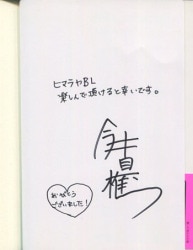 ヒマラヤBL
楽しんで頂けると幸いです。
ありがとう
ございました！